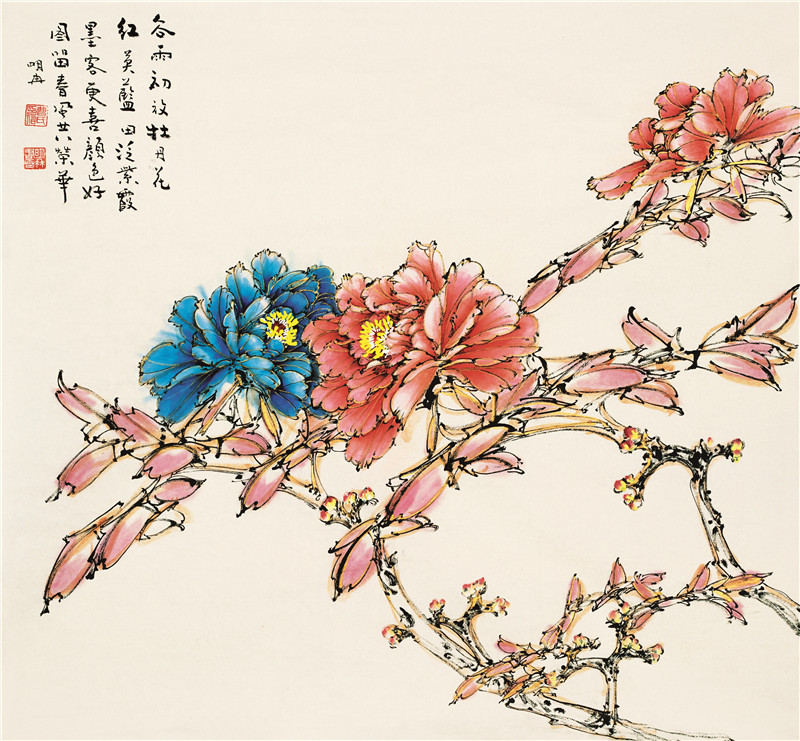 谷雨初放牡丹花
红英蓝田泛紫霞
墨客更喜颜色好
图留春风共荣华
明冉